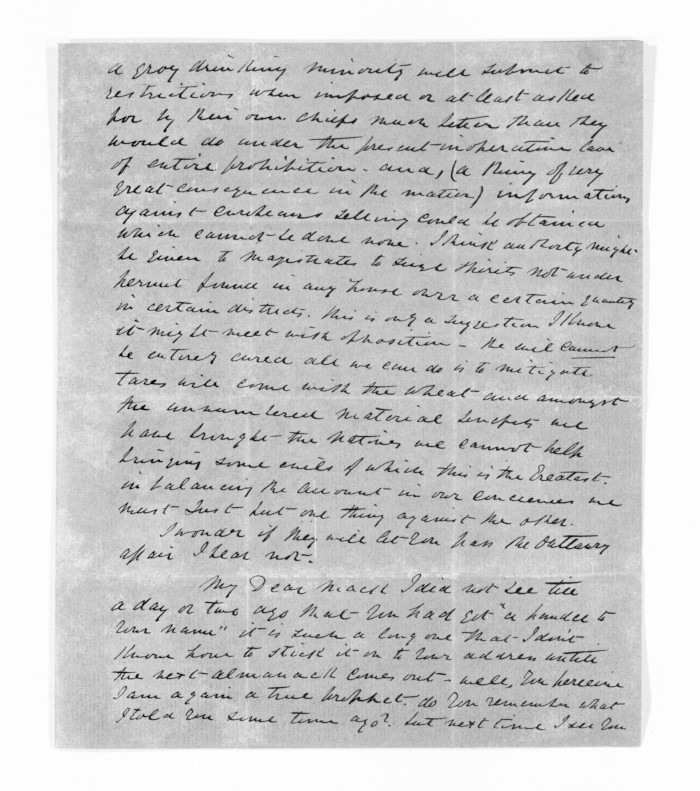 a grog drinking minority will submit to
restrictions when imposed or at least asked
for by their own chiefs much better than they
would do under the present inoperative law
of entire prohibition. and, (a thing of very
great consequence in the matter) informations
against Europeans selling could be obtained
which cannot be done now. I think authority might
be given to Magistrates to seize spirits not under
permit found in any house over a certain quantity
in certain districts. this is only a suggestion I know
it might meet with opposition – the evil cannot
be entirely cured all we can do is to mitigate
tares will come with the wheat and amongst
the unnumbered material benefits we
have brought the Natives we cannot help
bringing some evils of which this is the Greatest.
in balancing the account in our conciences we
must just put one thing against the other.
I wonder if they will let you pass the Outlawry
affair I hear not.
My Dear Mack I did not see till
a day or two ago that you had got "a handle to
your name" it is such a long one that I don't
know how to stick it on to your address until
the next almanack comes out – well, you perceive
I am again a true prophet. do you remember what
I told you some time ago? but next time I see you